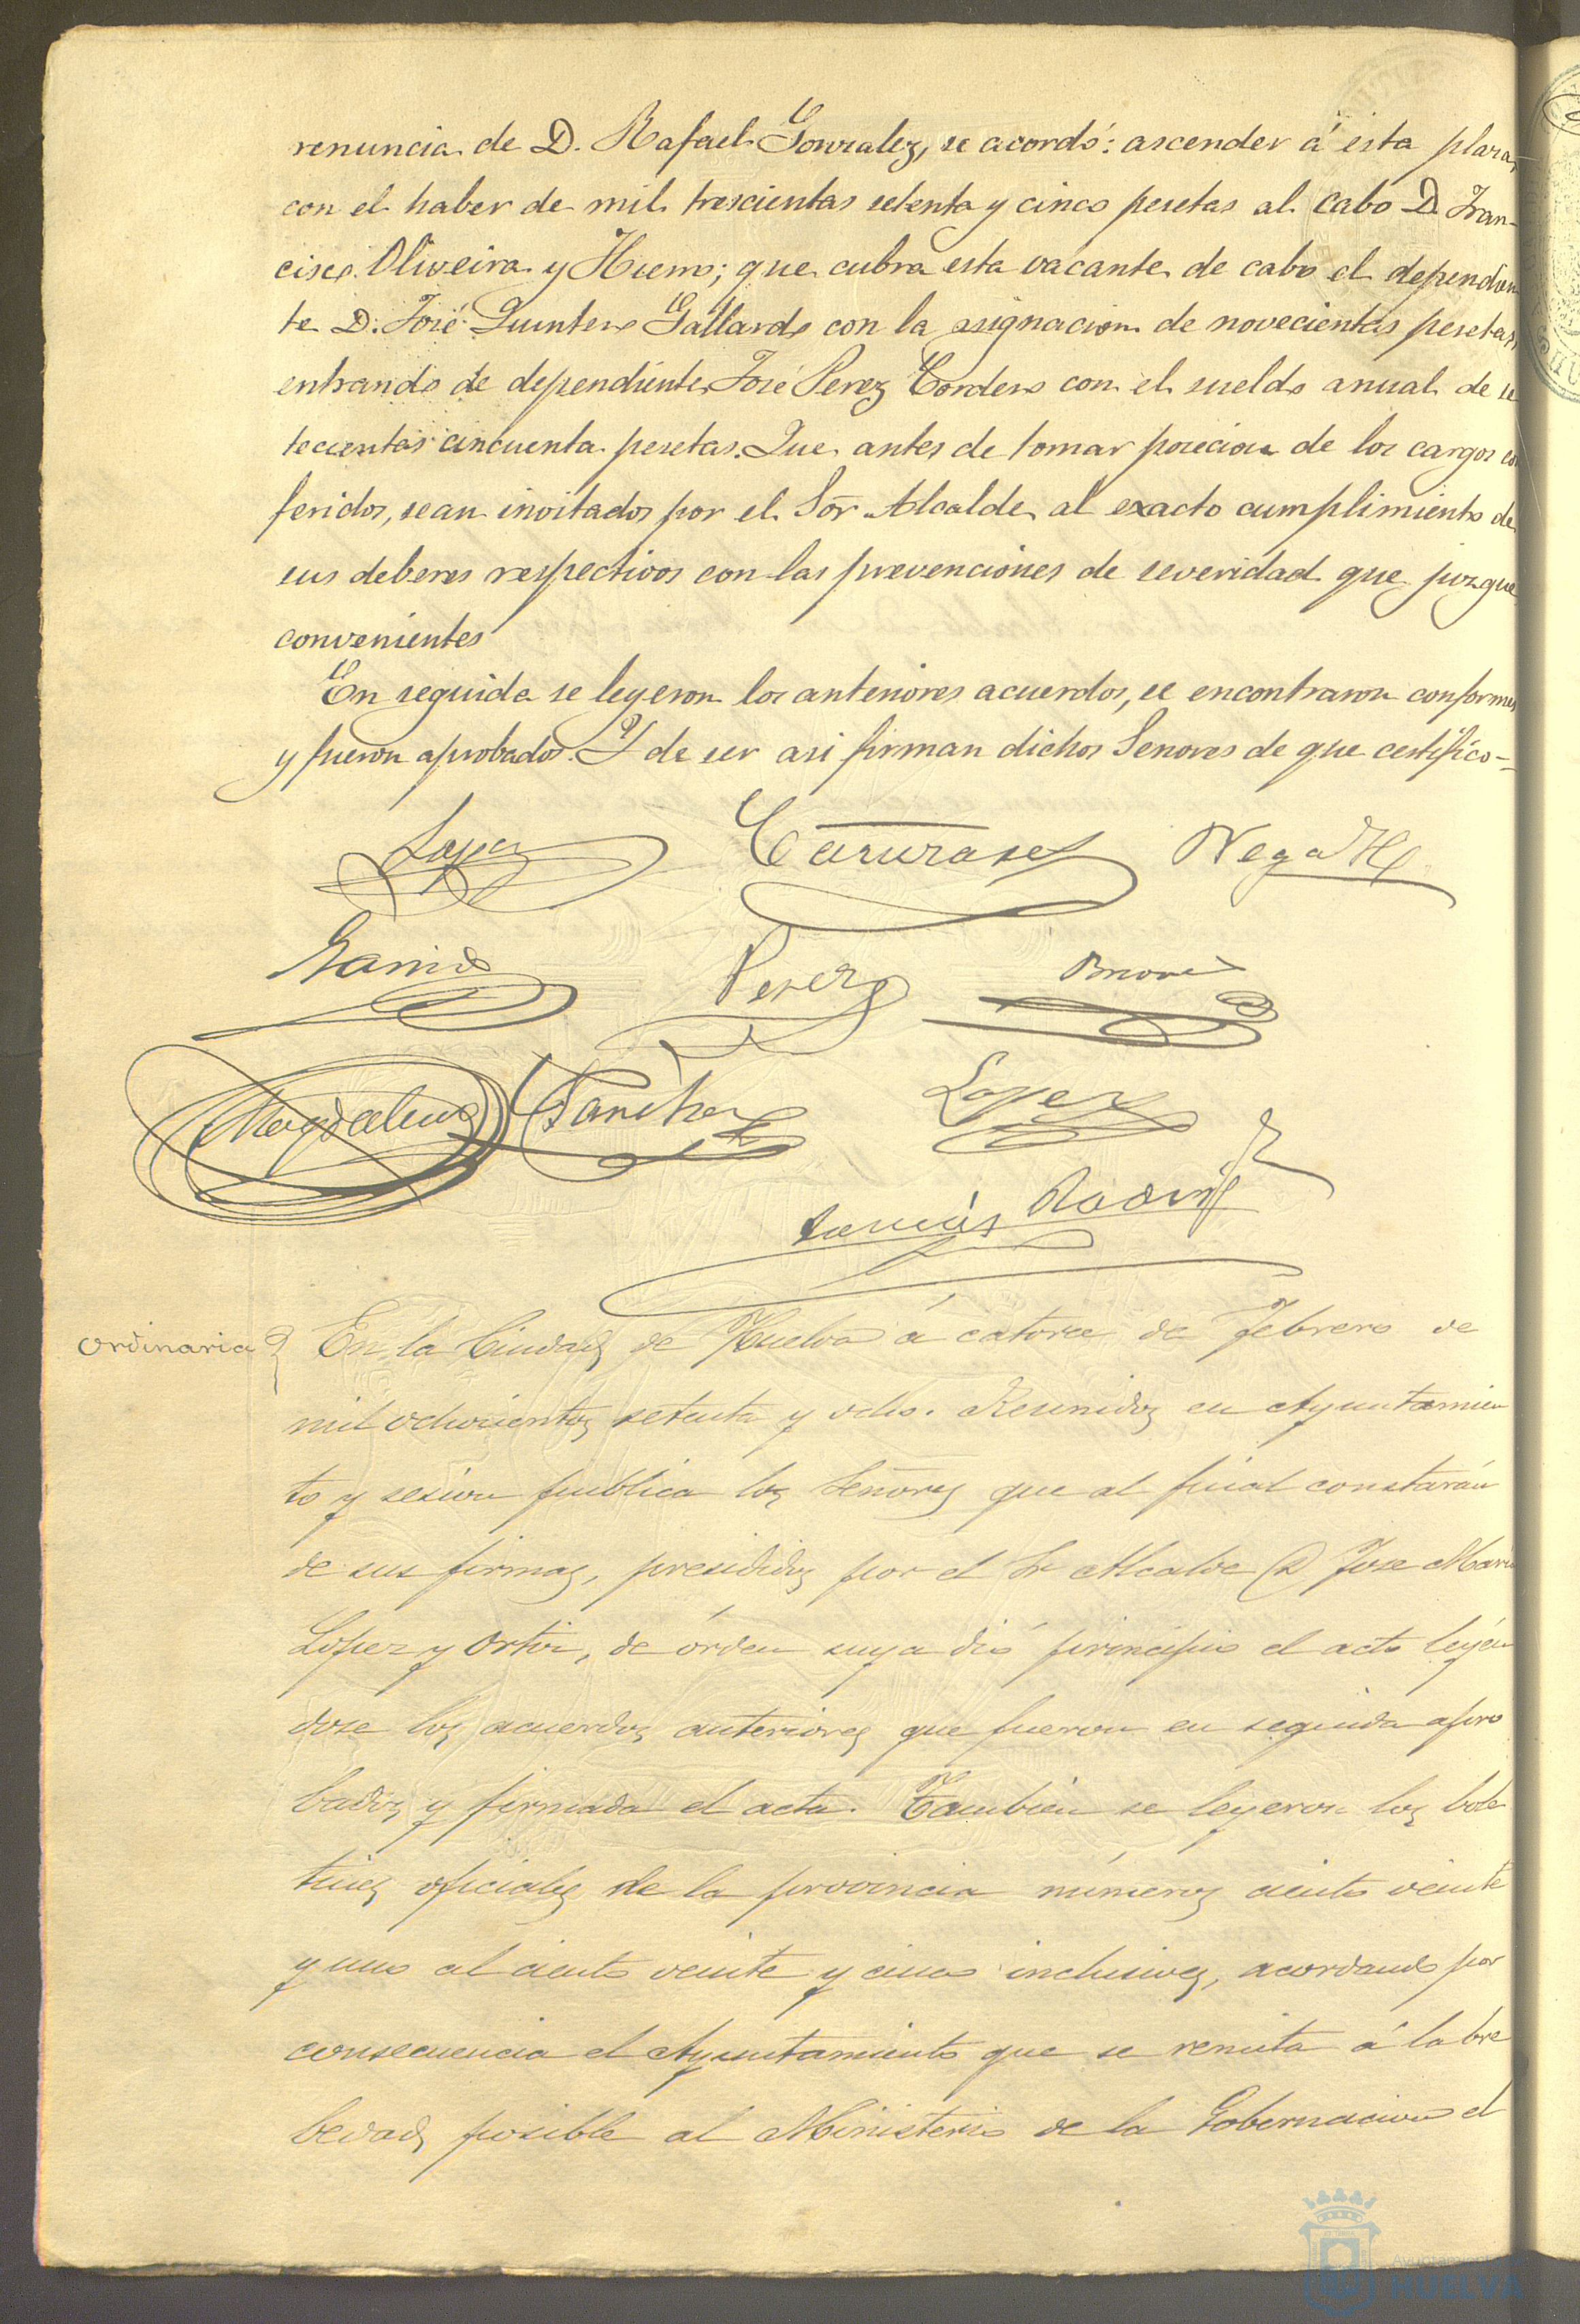 renuncia de D. Rafael Gonzalez, se acordó: ascender á esta plaza
con el haber de mil trescientas setenta y cinco pesetas al cabo D. Fran-
cisco Oliveira y ; que cubra esta vacante de cabo el dependien
te D. José Quintero Gallardo con la asignacion de novecientas pesetas,
entrando de dependiente José Perez Cordero con el sueldo anual de se
tecientas cincuenta pesetas. Que antes de tomar posecion de los cargos con
feridos, sean invitados por el Sor Alcalde al exacto cumplimiento de
sus deberes respectivos con las prevenciones de severidad que juzgue
convenientes
En seguida se leyeron los anteriores acuerdos, se encontraron conformes
y fueron aprobados. Y de ser asi firman dichos Senores de que certifico-
Lopez
Garrido Perez
Magdaleno Sanchez Lopez
Ordinaria En la Ciudad de Huelva á catorce de Febrero de
mil ochocientos setenta y ocho. Reunidos en Ayuntamien
to y sesion publica los Señores que al final constarán
de sus firmas, presididos por el Sr Alcalde D Jose Maria
Lopez y Ortiz, de órden suya dió principio el acto leyén
dose los acuerdos anteriores que fueron en seguida apro
bados y firmada el acta. Tambien se leyeron los bole
tines oficiales de la provincia números ciento veinte
y uno al ciento veinte y cinco inclusives, acordando por
consecuencia el Ayuntamiento que se remita á la bre
bedad posible al Ministerio de la Gobernacion el
HUELVA